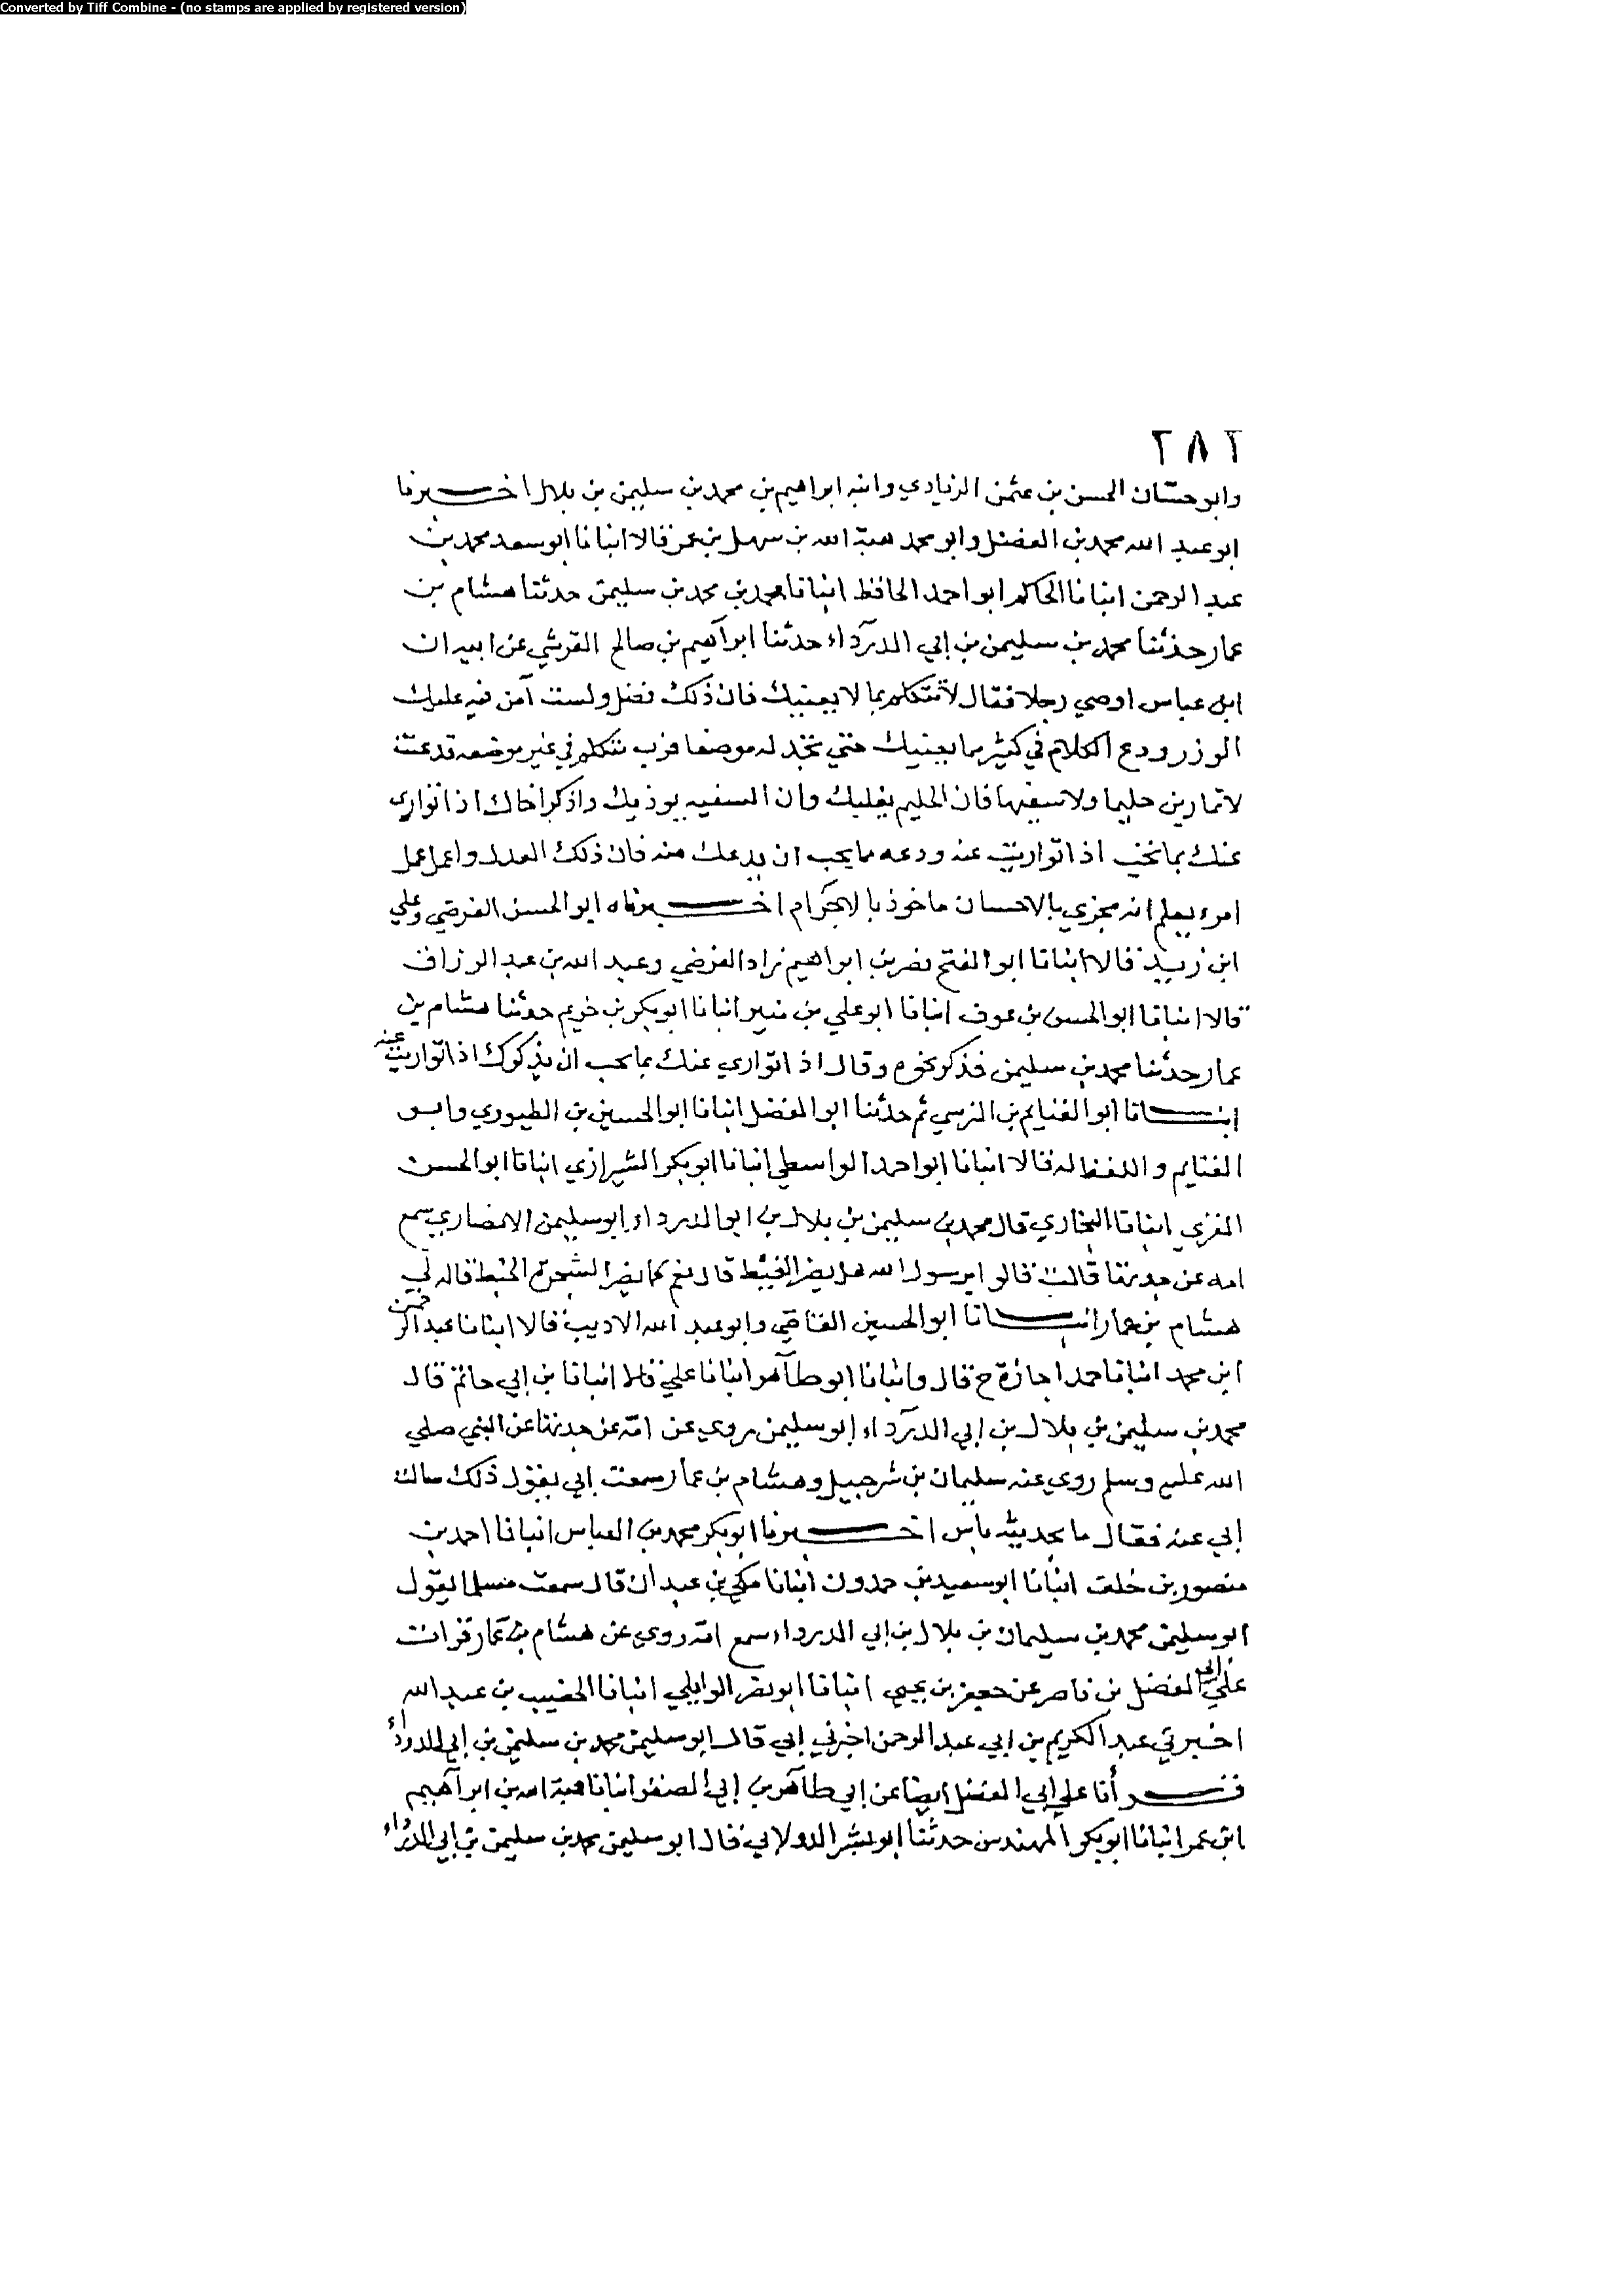 Converted by Tiff Combine - (no stamps are applied by registered version)
٢٨٢
وابو حسّان الحسن بن عثمن الزيادي وابنه ابراهيم بن محمد بن سليمن بن بلال اخبرنا
ابو عبد الله محمد بن الفضل وابو محمد هبة الله بن سهل بن عمر قالا انبانا ابو سعد محمد بن
عبد الرحمن انبانا الحاكم ابو احمد الحافظ انبانا محمد بن محمد بن سليمن حدثنا هشام بن
عمار حدثنا محمد بن سليمن بن ابي الدرداء حدثنا ابراهيم بن صالح القرشي عن ابيه ان
ابن عباس اوصي رجلا فقال لا تتكلم بما لا يعنيك فان ذلك فضل ولست آمن فيه عليك
الوزر ودع الكلام في كثير مما يعنيك حتي تجد له موضعا فرب متكلم في غير موضعه قد عنت
لا تمارين حليما ولا سفيها فان الحليم يغلبك وان السفيه يوذيك واذكر اخاك اذا تواري
عنك بما تحب اذا تواريت عنه ودعه مما يحب ان يدعك منه فان ذلك العدل واعمل عمل
امرء يعلم انه مجزي بالاحسان ماخوذ بالاجرام اخبرناه ابو الحسن الفرضي وعلي
ابن زيد قالا انبانا ابو الفتح نصر بن ابراهيم زاد الفرضي وعبد الله بن عبد الرزاق
قالا انبانا ابو الحسن بن عوف انبانا ابو علي بن منير انبانا ابو بكر بن خريم حدثنا هشام بن
عمار حدثنا محمد بن سليمن فذكر نحوه وقال اذا تواري عنك بما تحب ان يذكرك اذا تواريت عنه
انبانا ابو الغنايم بن النرسي ثم حدثنا ابو الفضل انبانا ابو الحسين بن الطيوري وابو
الغنايم واللفظ له قالا انبانا ابو احمد الواسطي انبانا ابو بكر الشيرازي انبانا ابو الحسن
المقري انبانا البخاري قال محمد بن سليمن بن بلال بن ابو الدرداء ابو سليمن الانصاري سمع
امه عن جدتها قالت قالوا يرسول الله هل يضر الغبط قال نعم كما يضر الشجرة الخبط قاله لي
هشام بن عمار انبانا ابو الحسين القاضي وابو عبد الله الاديب قالا انبانا عبد الرحمن
ابن محمد انبانا حمد اجازة ح قال وانبانا ابو طاهر انبانا علي قالا انبانا بن ابي حاتم قال
محمد بن سليمن بن بلال بن ابي الدرداء ابو سليمن روي عن امّه عن جدتها عن النبي صلي
الله عليه وسلم روي عنه سليمان بن شرحبيل وهشام بن عمار سمعت ابي يقول ذلك سالت
ابي عنه فقال ما بحديثه باس اخبرنا ابو بكر محمد بن العباس انبانا احمد بن
منصور بن خلف انبانا ابو سعيد بن حمدون انبانا مكي بن عبدان قال سمعت مسلما يقول
ابو سليمن محمد بن سليمان بن بلال بن ابي الدرداء سمع امّه روي عن هشام بن عمار قرات
علي ابي الفضل بن ناصر عن جعفر بن يحيي انبانا ابو نصر الوايلي انبانا الخصيب بن عبد الله
اخبرني عبد الكريم بن ابي عبد الرحمن اخبرني ابي قال ابو سليمن محمد بن سليمن بن ابي الدرداء
قرأنا علي ابي الفضل ايضا عن ابي طاهر بن ابي الصقر انبانا هبة الله بن ابراهيم
ابن عمر انبانا ابو بكر المهندس حدثنا ابو بشر الدولابي قال ابو سليمن محمد بن سليمن بن ابي الدرداء